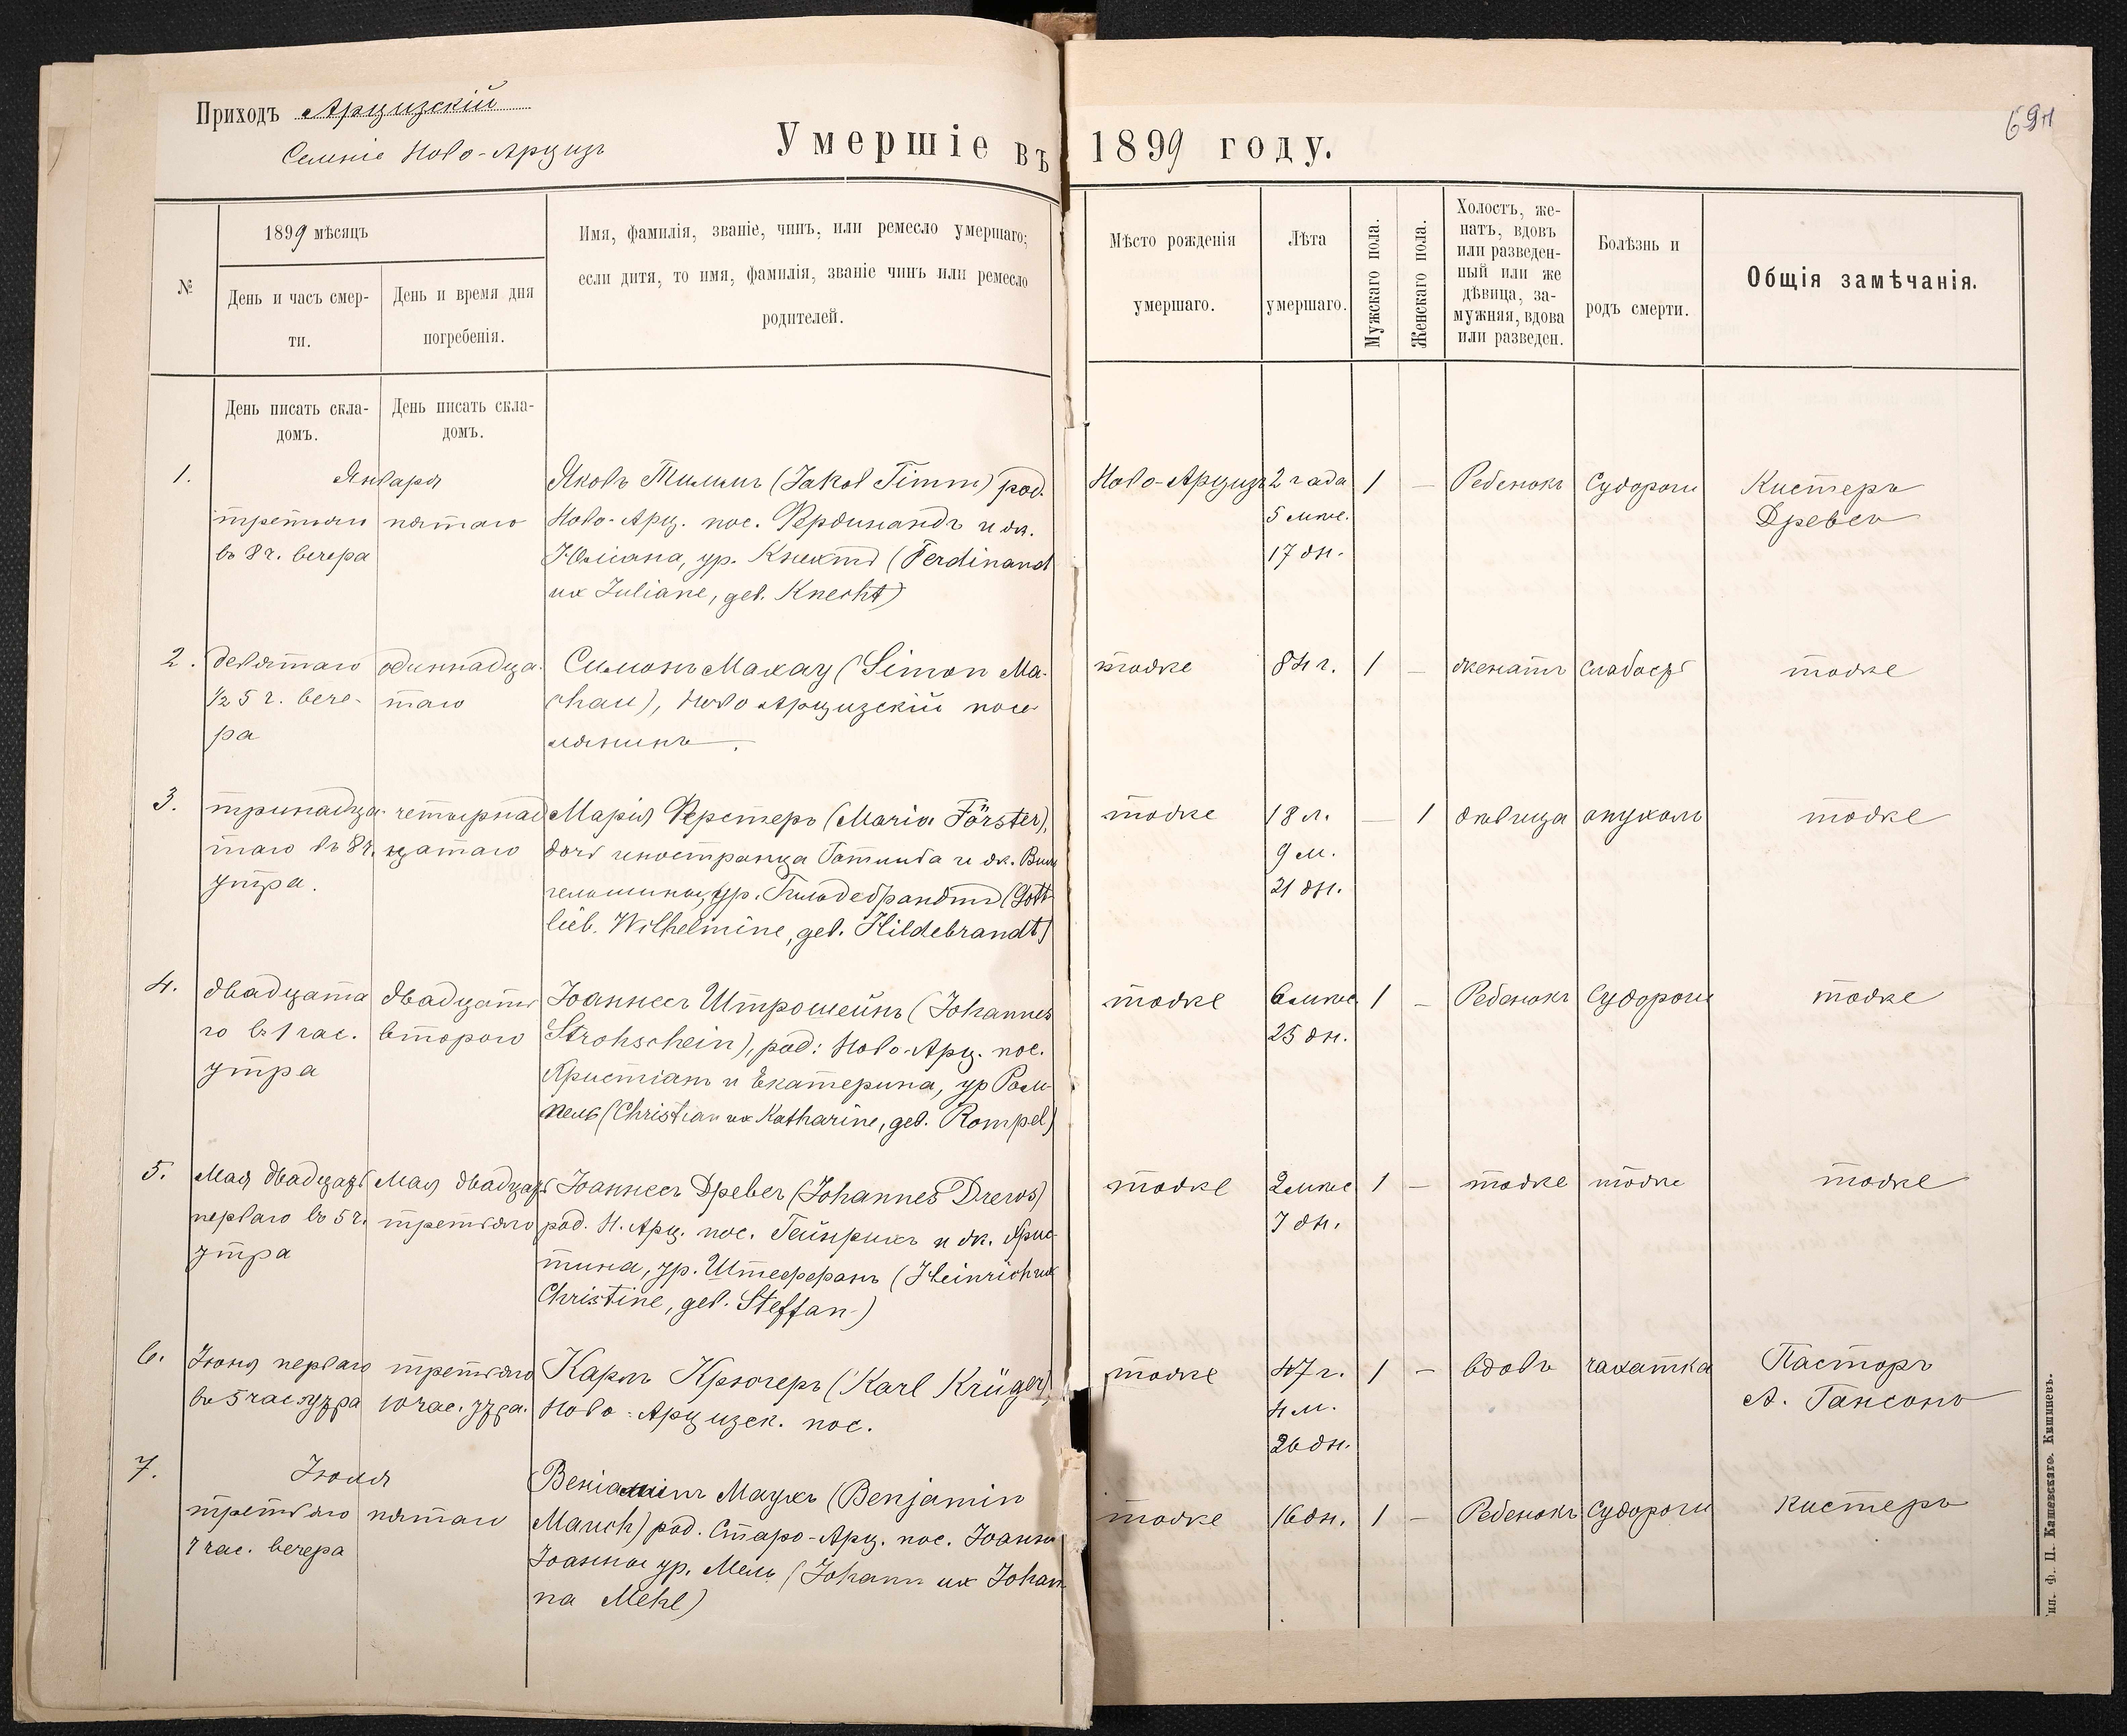 Приходъ Арцизскій
Селеніе Ново-Арцизъ
Умершіе въ 1899 году.
69
№
1899 мѣсяцъ
День и часъ смер-
ти.
День и время дня
погребенія.
Имя, фамилія, званіе, чинъ, или ремесло умершаго;
если дитя, то имя, фамилія, званіе чинъ или ремесло
родителей.
Мѣсто рожденія
умершаго.
Лѣта
умершаго.
Мужскаго пола.
Женскаго пола.
Холостъ, же-
натъ, вдовъ
или разведен-
ный или же
дѣвица, за-
мужняя, вдова
или разведен.
Болѣзнь и
родъ смерти.
Общія замѣчанія.
День писать скла-
домъ.
День писать скла-
домъ.
1.
Января
третьяго
въ 8 ч. вечера
пятаго
Яковъ Тиммъ (Jakob Timm) род.
Ново-Арц. пос. Фердинандъ и ж.
Юліана, ур. Кнехтъ (Ferdinand
ux Juliane, geb. Knecht)
Ново-Арцизъ
2 года
5 мѣс.
17 дн.
1
—
Ребенокъ
Судороги
Кистеръ
Древсъ
2.
девятаго
½ 5 ч. вече-
ра
одиннадца-
таго
Симонъ Махау (Simon Ma-
chau), Ново Арцизскій посе-
лянинъ.
тоже
84 г.
1
—
женатъ
слабость
тоже
3.
тринадца-
таго въ 8 ч.
утра.
четырнад
цатаго
Марія Ферстеръ (Maria Förster),
дочь иностранца Готлиба и ж. Виль
гельмины, ур. Гильдебрандтъ (Gott-
lieb. Wilhelmine, geb. Hildebrandt)
тоже
18 л.
9 м.
21 дн.
—
1
дѣвица
опухоль
тоже
4.
двадцата
го въ 1 час.
утра
двадцать
второго
Іоаннесъ Штрошейнъ (Johannes
Strohschein), род: Ново-Арц. пос.
Христіанъ и Екатерина, ур Ром-
пель (Christian ux Katharine, geb. Rompel)
тоже
6 мѣс.
25 дн.
1
—
Ребенокъ
Судороги
тоже
5.
Мая двадцать
перваго въ 5 ч.
утра
Мая двадцать
третьяго
Іоаннесъ Древсъ (Johannes Drews)
род. Н. Арц. пос. Гейнрихъ и ж. Хрис-
тина, ур. Штеффанъ (Heinrich ux
Christine, geb. Steffan)
тоже
2 мѣс
7 дн.
1
—
тоже
тоже
тоже
6.
Іюня перваго
въ 5 час. утра
третьяго
10 час. утра.
Карлъ Крюгеръ (Karl Krüger)
Ново-Арцизск. пос.
тоже
47 г.
4 м.
26 дн.
1
—
вдовъ
чахотка
Пасторъ
А. Гансонъ
7.
Іюля
третьяго
7 час. вечера
пятаго
Веніаминъ Маухъ (Benjamin
Mauch) род. Старо-Арц. пос. Іоаннъ
Іоанна ур. Мель (Johann ux Johan
na Mehl)
тоже
16 дн.
1
—
Ребенокъ
Судороги
Кистеръ
Тип. Ф. П. Кашевскаго. Кишиневъ.